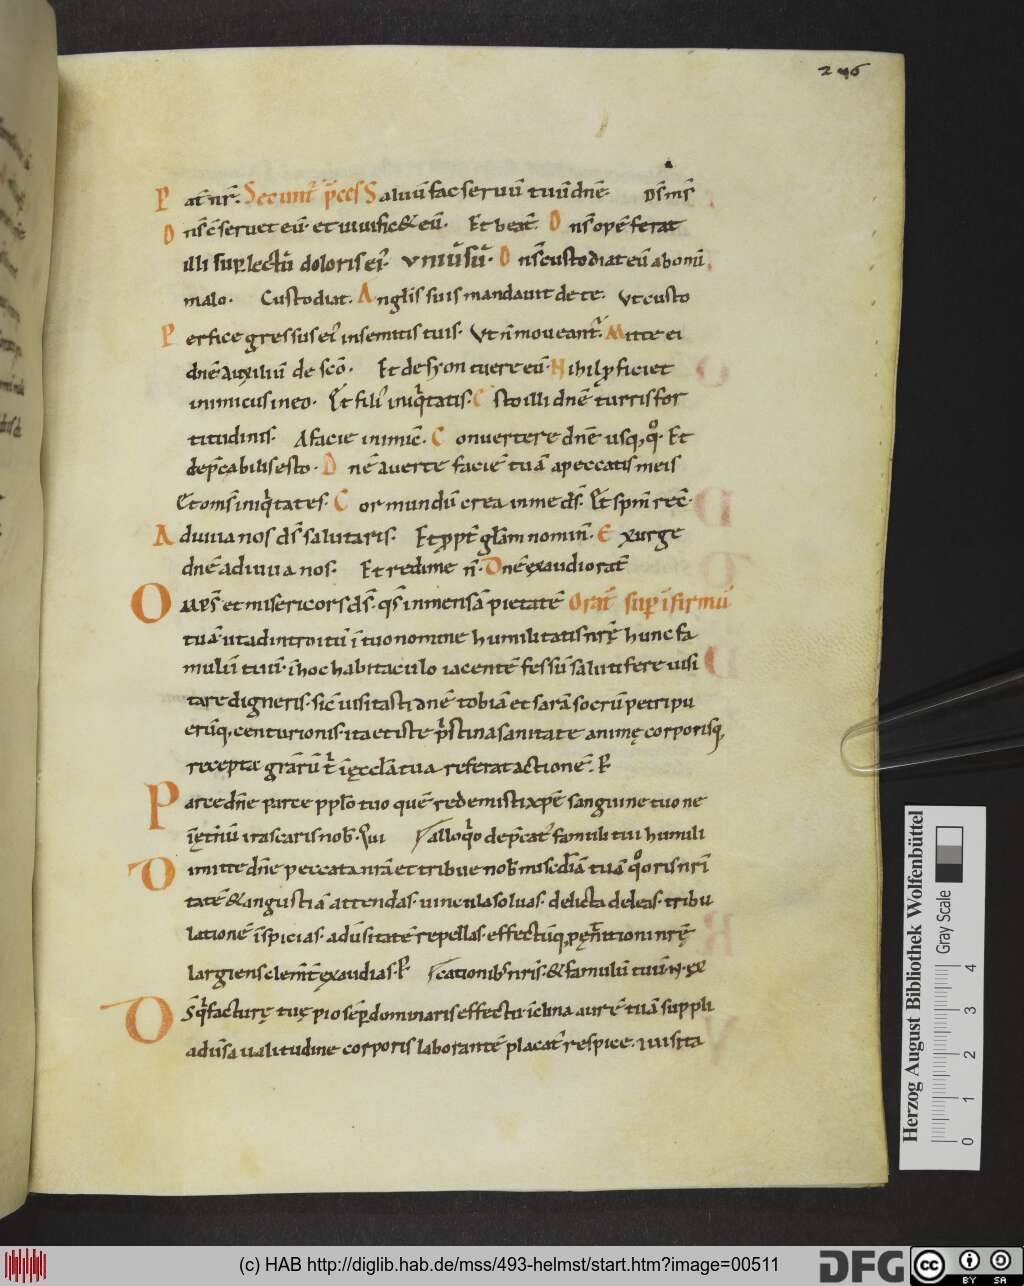 246
Pat̄ nr̄. Secunt̄ p̄ces Saluū fac seruū tuū dnē. Ds̄ ms̄
Dns̄ c̄seruet eū. et uiuific& eū. Et beat̄. Dns̄ opē ferat
illi sup lectū doloris ei. vniūsū. Dns̄ custodiat eū ab omi
malo. Custodiat. Anglis suis mandauit de te. Vt custo
Perfice gressus ei in semitis tuis. Vt n̄ moueant̄. Mitte ei
dnē auxiliū de scō. Et de syon tuere eū. Nihil ꝓficiet
inimicus in eo. Et fili iniqtatis. Esto illi dnē turris for
titudinis. A facie inimic̄. Conuertere dnē usq, qo. Et
dep̄cabilis esto. Dnē auerte faciē tuā a peccatis meis
Et om̄s iniqtates. Cor mundū crea in me ds̄. Et spm̄ rec̄.
Adiuua nos ds̄ salutaris. Et ꝓpt̄ glam̄ nomin̄. Exurge
dnē adiuua nos. Et redime n̄. Dnē exaudi orat̄
Omps̄ et misericors ds̄. qs̄ inmensā pietatē Orat̄ sup īfirmū
tuā ut ad introitū ī tuo nomine humilitatis nrę̄ hunc fa
mulū tuū. ī hoc habitaculo iacentē fessū salutifere uisi
tare digneris. sic̄ uisitasti dnē tobiā et sarā socrū petri pu
erūq, centurionis. ita et iste p̄stina sanitate animę corporisq,
recepta grārū t̄ ī ęccla tua referat actionē. P
Parce dnē parce pplo tuo quē redemisti xpē sanguine tuo ne
ī ęt̄nū irascaris nob̄. Qui alloqo dep̄cat̄ famuli tui humili
Dimitte dnē peccata nrā et tribue nob̄ misc̄diā tuā qo oris nri
tatē & angustiā attendas. uincula soluas. delicta deleas. tribu
lationē īspicias. adūsitatē repellas. effectūq, pęt̄itioni nrę̄
largiens clem̄t̄ exaudias. P cationibs̄ nris̄. & famulū tuū N. ex
Ds̄ q facturę tuę pio semp dominaris effectu īclina aurē tuā suppli
adūsa ualitudine corporis laborantē placat̄ respice. & uisita
Herzog August Bibliothek Wolfenbüttel
Gray Scale
0 1 2 3 4
(c) HAB http://diglib.hab.de/mss/493-helmst/start.htm?image=00511
DFG
cc BY SA